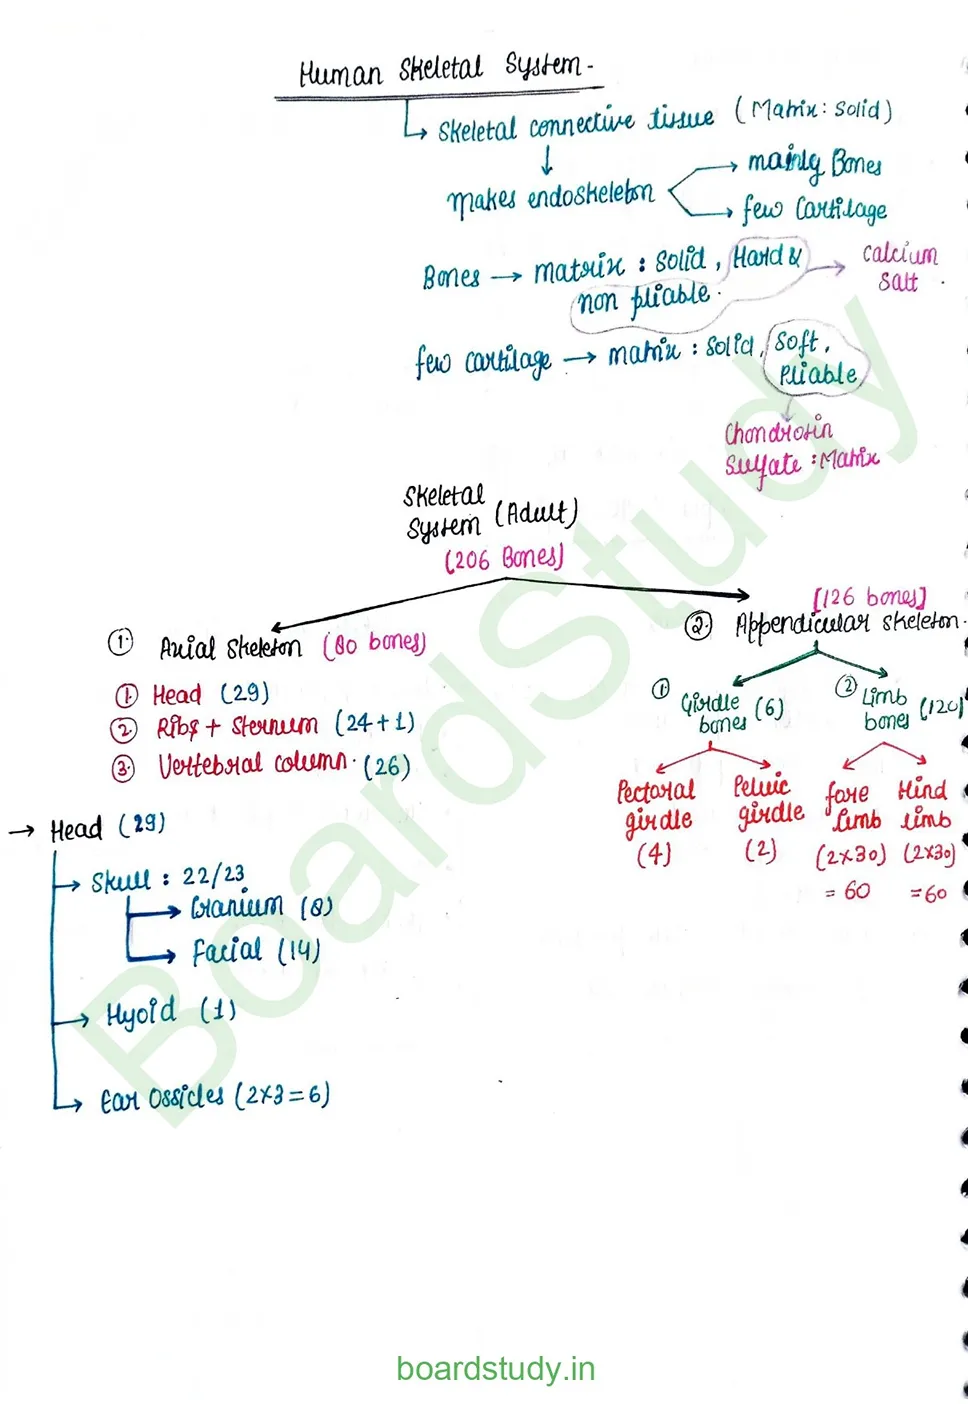 Human Skeletal System -
Skeletal connective tissue (Matrix : Solid)
makes endoskeleton
mainly Bones
few Cartilage
Bones → matrix : Solid, Hard &
non pliable.
Calcium
Salt .
few cartilage → matrix : Solid, Soft,
Pliable
Chondriotin
Sulfate : Matrix
Skeletal
System (Adult)
(206 Bones)
① Axial Skeleton (80 bones)
① Head (29)
② Ribs + Sternum (24+1)
③ Vertebral column. (26)
[126 bones]
② Appendicular skeleton.
① Girdle
bones (6)
② Limb
bones (120)
Pectoral
girdle
(4)
Pelvic
girdle
(2)
fore
limb
(2×30)
= 60
Hind
limb
(2×30)
= 60
→ Head (29)
→ Skull : 22/23
→ Cranium (8)
→ facial (14)
→ Hyoid (1)
→ Ear Ossicles (2×3=6)
BoardStudy
boardstudy.in